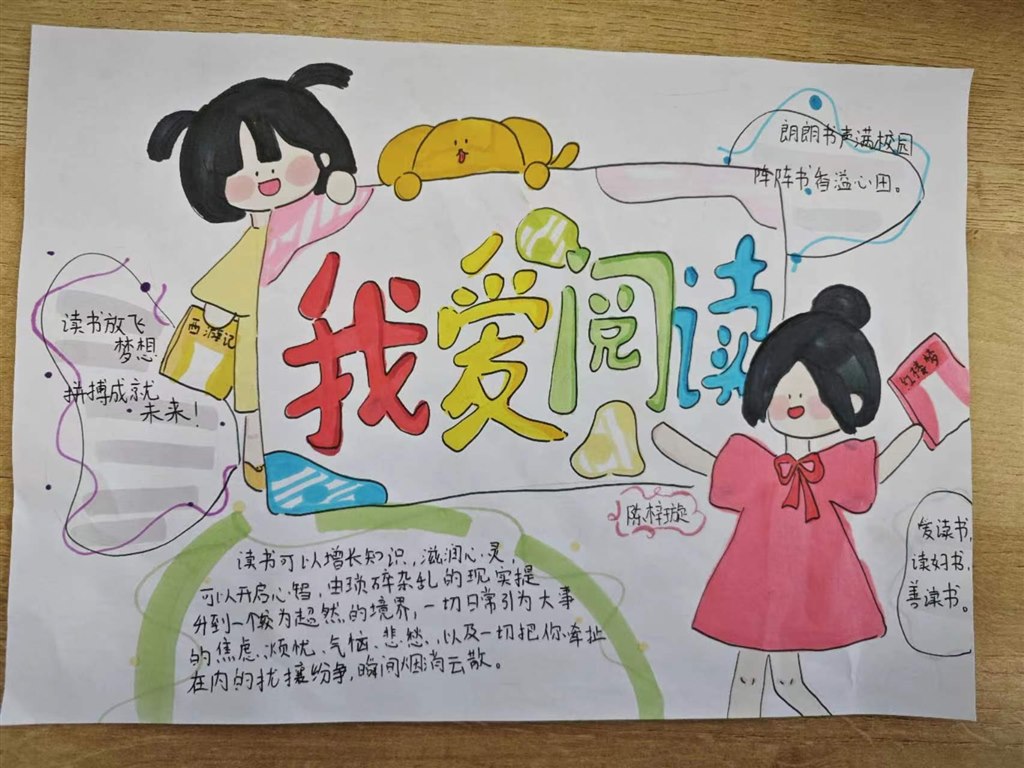 朗朗书声满校园
阵阵书香溢心田。
我爱阅读
西游记
红楼梦
读书放飞
梦想
拼搏成就
未来！
陈梓璇
爱读书，
读好书，
善读书。
读书可以增长知识，滋润心灵，
可以开启心智，由琐碎杂乱的现实提
升到一个较为超然的境界，一切日常引为大事
的焦虑、烦忧、气恼、悲愁，以及一切把你牵扯
在内的扰攘纷争，瞬间烟消云散。